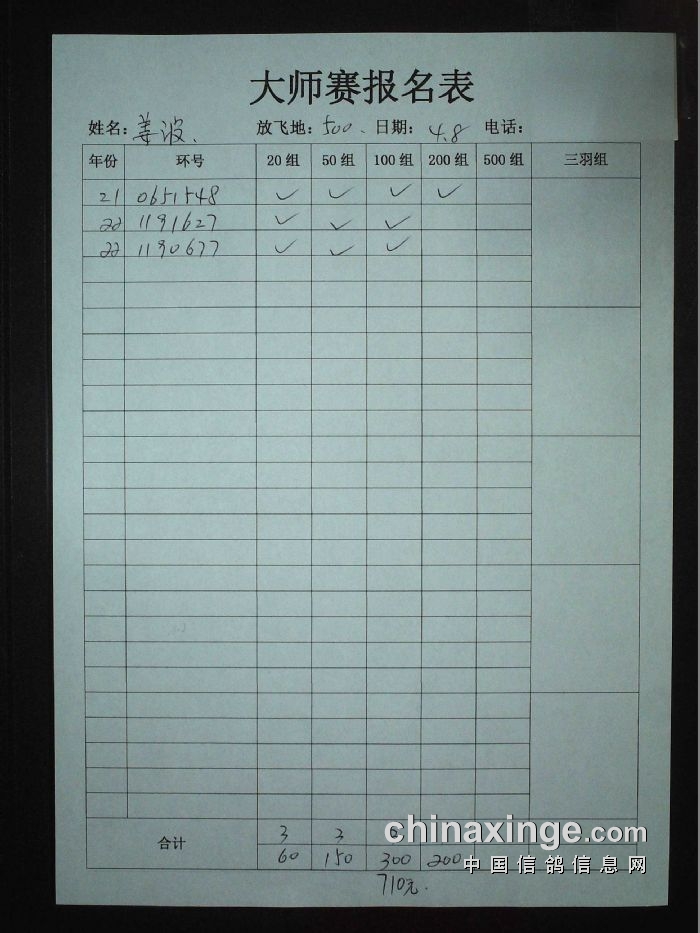 大师赛报名表
姓名: 姜波. 放飞地: 500. 日期: 4.8 电话:
年份 环号 20 组 50 组 100 组 200 组 500 组 三羽组
21 0651548 ✓ ✓ ✓ ✓
22 1191627 ✓ ✓ ✓
22 1190677 ✓ ✓ ✓
合计 3 3
60 150 300 200
710元.
chinaxinge.com
中国信鸽信息网